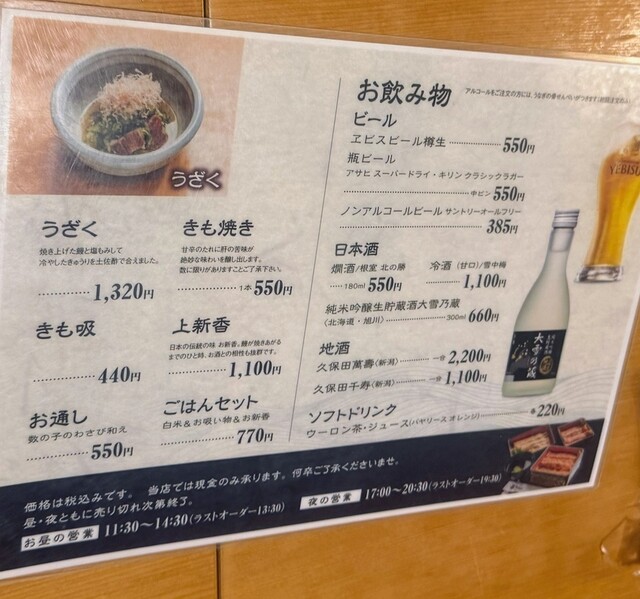 うざく
うざく
焼き上げた鰻と塩もみして
冷やしたきゅうりを土佐酢で合えました。
1,320円
きも焼き
甘辛のたれに肝の苦味が
絶妙な味わいを醸し出します。
数に限りがありますことご了承下さい。
1本 550円
きも吸
440円
上新香
日本の伝統の味 お新香。鰻が焼きあがる
までのひと時、お酒との相性も抜群です。
1,100円
お通し
数の子のわさび和え
550円
ごはんセット
白米&お吸い物&お新香
770円
お飲み物
ビール
ヱビスビール樽生 550円
瓶ビール
アサヒ スーパードライ・キリン クラシックラガー
中ビン 550円
ノンアルコールビール サントリーオールフリー
385円
日本酒
燗酒/根室 北の勝
180ml 550円
冷酒(甘口)/雪中梅
1,100円
純米吟醸生貯蔵酒大雪乃蔵
〈北海道・旭川〉 300ml 660円
地酒
久保田萬壽〈新潟〉 一合 2,200円
久保田千寿〈新潟〉 一合 1,100円
ソフトドリンク
ウーロン茶・ジュース(バヤリース オレンジ) 各 220円
YEBISU
大雪乃蔵
価格は税込みです。 当店では現金のみ承ります。何卒ご了承くださいませ。
昼・夜ともに売り切れ次第終了。
お昼の営業 11:30〜14:30(ラストオーダー13:30)
夜の営業 17:00〜20:30(ラストオーダー19:30)